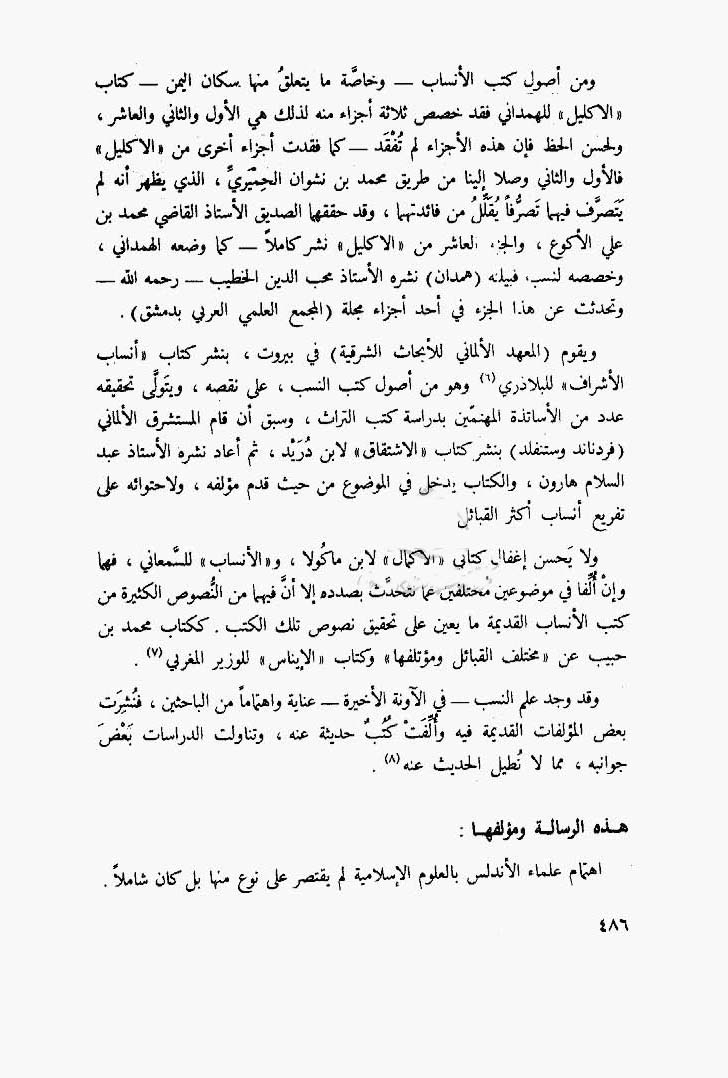 ومن أصول كتب الأنساب — وخاصَّة ما يتعلقُ منها بسكان اليمن — كتاب
«الاكليل» للهمداني فقد خصص ثلاثة أجزاء منه لذلك هي الأول والثاني والعاشر ،
ولحسن الحظ فإن هذه الأجزاء لم تُفْقَد — كما فقدت أجزاء أخرى من «الاكليل»
فالأول والثاني وصلا إلينا من طريق محمد بن نشوان الحِمْيَريِّ ، الذي يظهر أنه لم
يَتَصرَّف فيهما تَصرُّفاً يُقَلِّلُ من فائدتهما ، وقد حققهما الصديق الأستاذ القاضي محمد بن
علي الأكوع ، والجزء العاشر من «الاكليل» نشر كاملاً — كما وضعه الهمداني ،
وخصصه لنسب قبيلته (همدان) نشره الأستاذ محب الدين الخطيب — رحمه الله —
وتحدثت عن هذا الجزء في أحد أجزاء مجلة (المجمع العلمي العربي بدمشق) .
ويقوم (المعهد الألماني للأبحاث الشرقية) في بيروت ، بنشر كتاب «أنساب
الأشراف» للبلاذري(٦) وهو من أصول كتب النسب ، على نقصه ، ويتَولَّى تحقيقه
عدد من الأساتذة المهتمّين بدراسة كتب التراث ، وسبق أن قام المستشرق الألماني
(فردناند وستنفلد) بنشر كتاب «الاشتقاق» لابن دُرَيْد ، ثم أعاد نشره الأستاذ عبد
السلام هارون ، والكتاب يدخل في الموضوع من حيث قدم مؤلفه ، ولاحتوائه على
تفريع أنساب أكثر القبائل
ولا يَحسن إغفال كتابي «الاكمال» لابن ماكُولا ، و«الأنساب» للسَّمعاني ، فهما
وإنْ أُلِّفا في موضوعين مُختلفين عما نتحدَّث بصدده إلا أنَّ فيهما من النُّصوص الكثيرة من
كتب الأنساب القديمة ما يعين على تحقيق نصوص تلك الكتب . ككتاب محمد بن
حبيب عن «مختلف القبائل ومؤتلفها» وكتاب «الإيناس» للوزير المغربي(٧) .
وقد وجد علم النسب — في الآونة الأخيرة — عناية واهتماماً من الباحثين ، فنُشِرَت
بعض المؤلفات القديمة فيه وأُلِّفَتْ كُتُبٌ حديثة عنه ، وتناولت الدراسات بَعْضَ
جوانبه ، مما لا نُطيل الحديث عنه(٨) .
هـذه الرسالـة ومؤلفهـا :
اهتمام علماء الأندلس بالعلوم الإسلامية لم يقتصر على نوع منها بل كان شاملاً .
٤٨٦